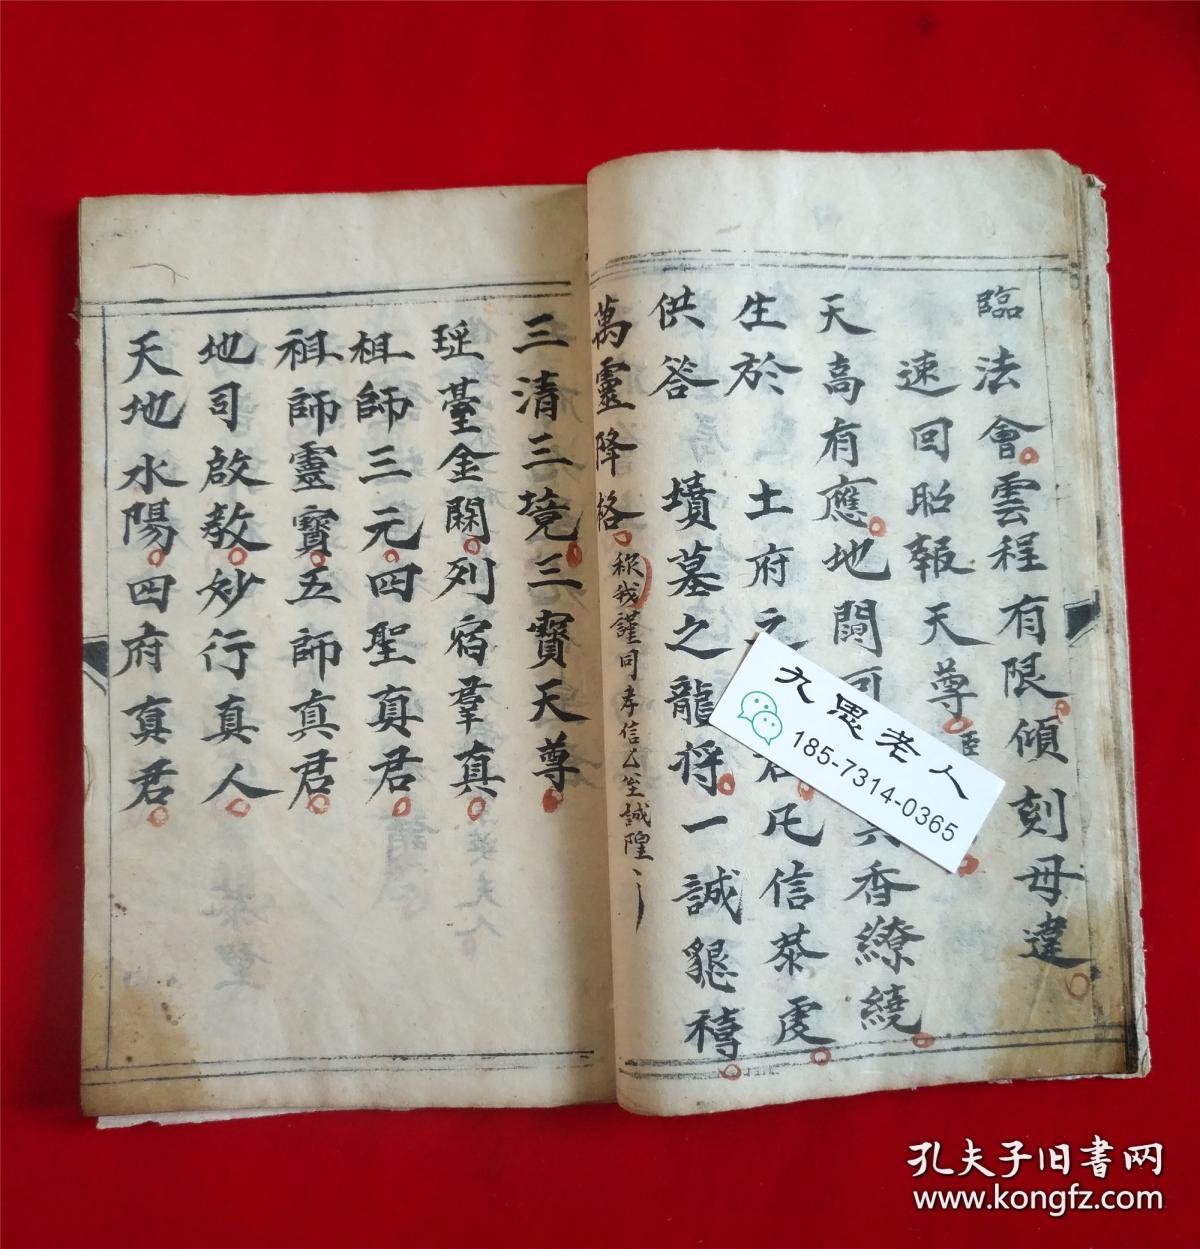 臨法會雲程有限傾刻毋違
速回昭報天尊 臣
天高有應地闊 香繚繞
生於 土府之 君凡信恭虔
供答 墳墓之龍將一誠懇禱
萬靈降格 我謹同孝信厶至誠
三清三境三寳天尊
瑶臺金闕列宿羣真
祖師三元四聖真君
祖師靈寳五師真君
地司啟教妙行真人
天地水陽四府真君
九思老人
185-7314-0365
孔夫子旧書网
www.kongfz.com